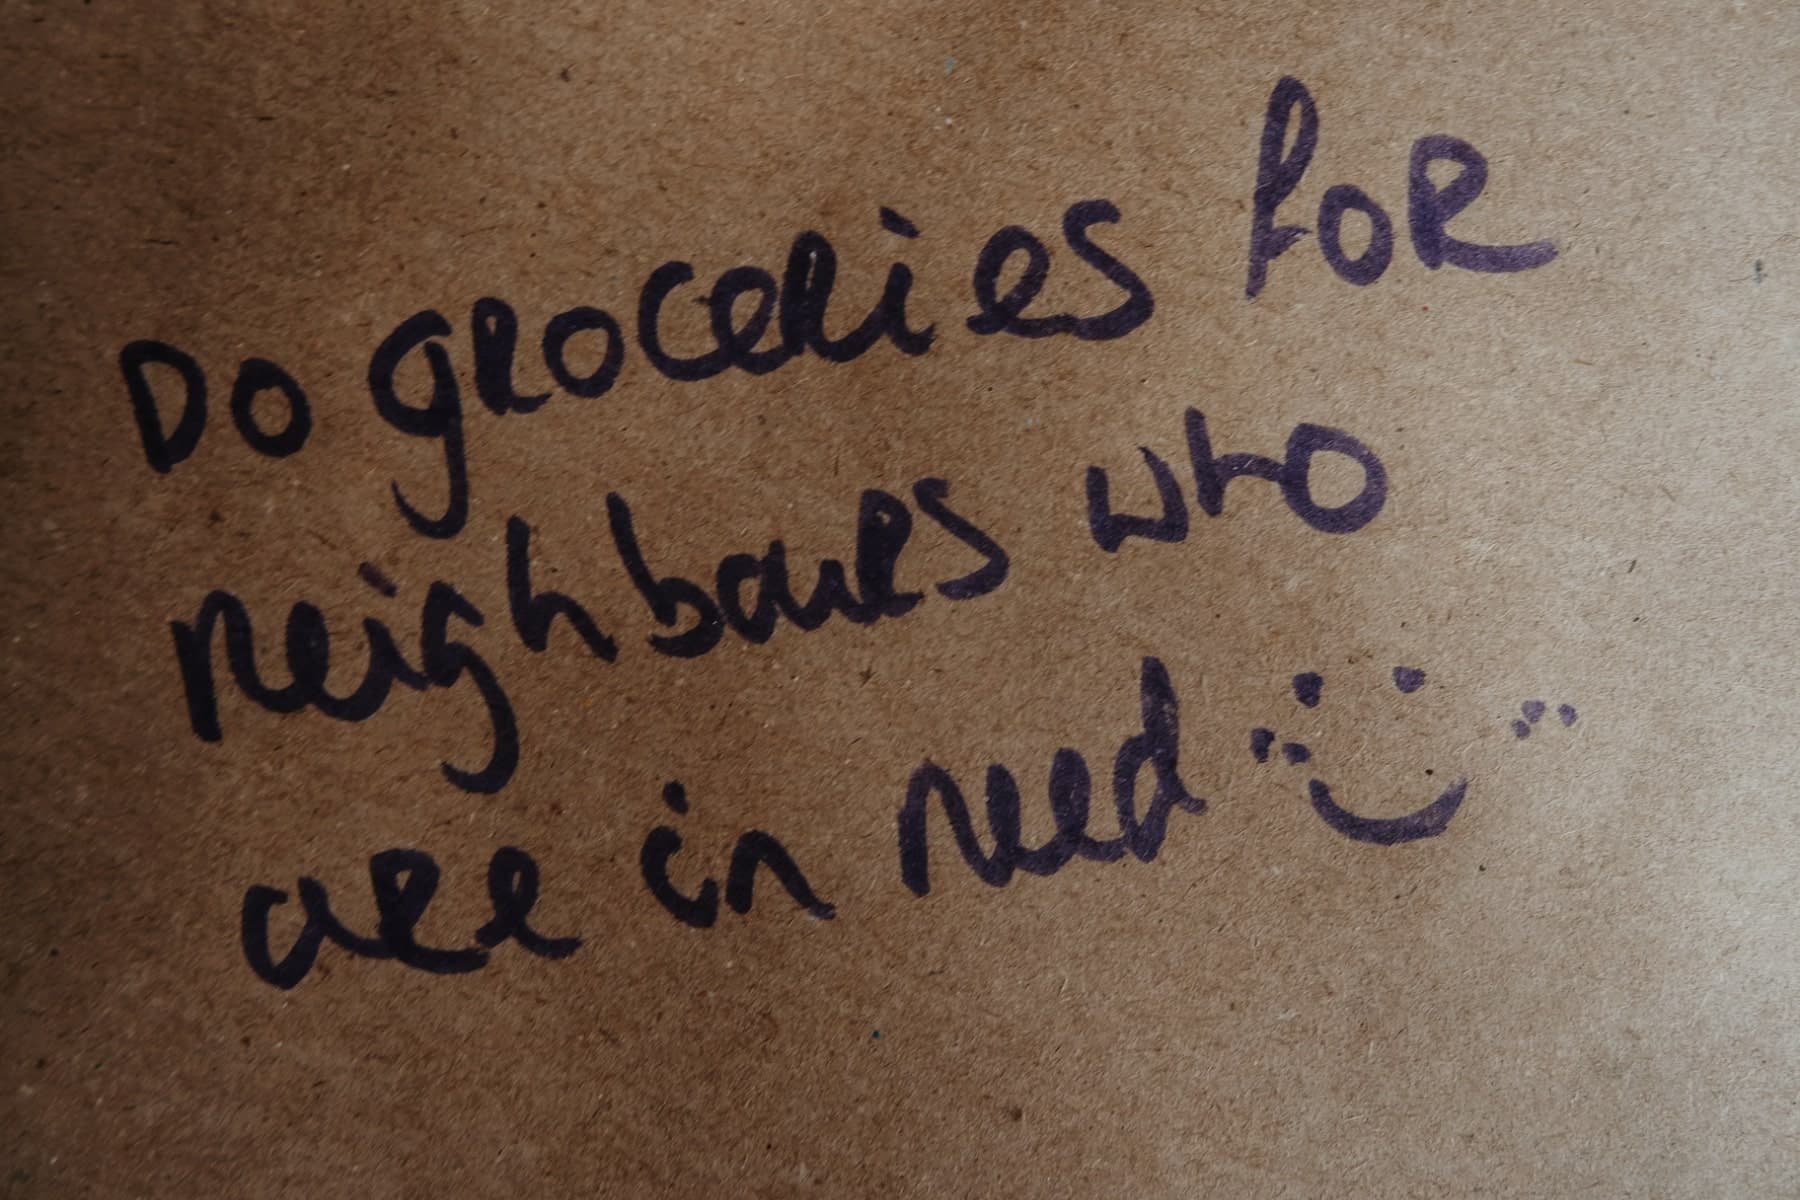 Do groceries for
neighbours who
are in need